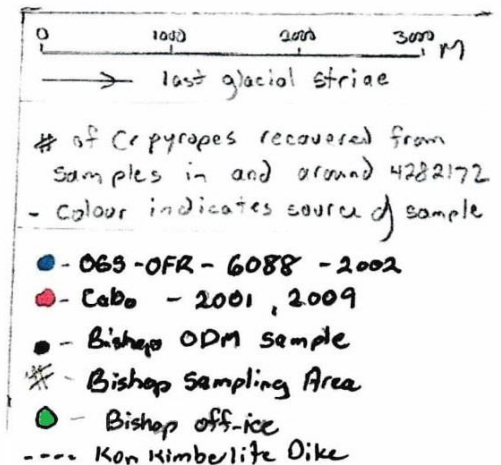 0 1000 2000 3000 M
last glacial striae
# of Cr pyropes recovered from
samples in and around 4282172
- Colour indicates source of sample
- OGS-OFR-6088-2002
- Cabo - 2001, 2009
- Bishop ODM sample
- Bishop Sampling Area
- Bishop off-ice
---- Kon Kimberlite Dike